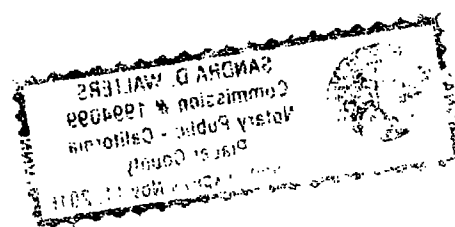 SANDRA D. WALTERS
Commission # 1994099
Notary Public - California
Placer County
Expires Nov 11, 2016